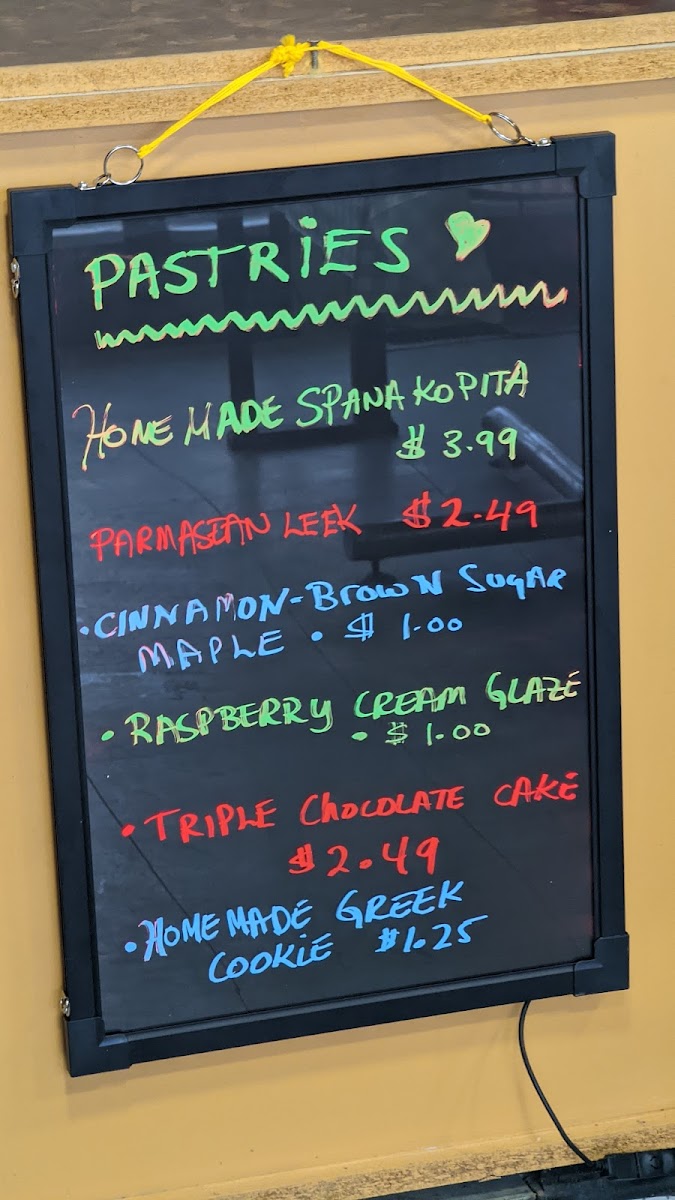 PASTRIES
HOME MADE SPANAKOPITA
$ 3.99
PARMASEAN LEEK $2.49
•CINNAMON-BROWN SUGAR
MAPLE • $ 1.00
• RASPBERRY CREAM GLAZE
• $ 1.00
• TRIPLE CHOCOLATE CAKE
$2.49
•HOMEMADE GREEK
COOKIE $1.25